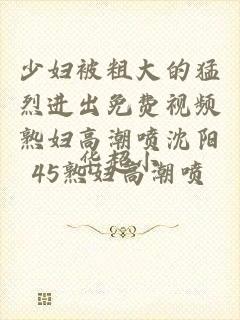 少妇被粗大的猛
烈进出免费视频
熟妇高潮喷沈阳
45熟妇高潮喷
华超小